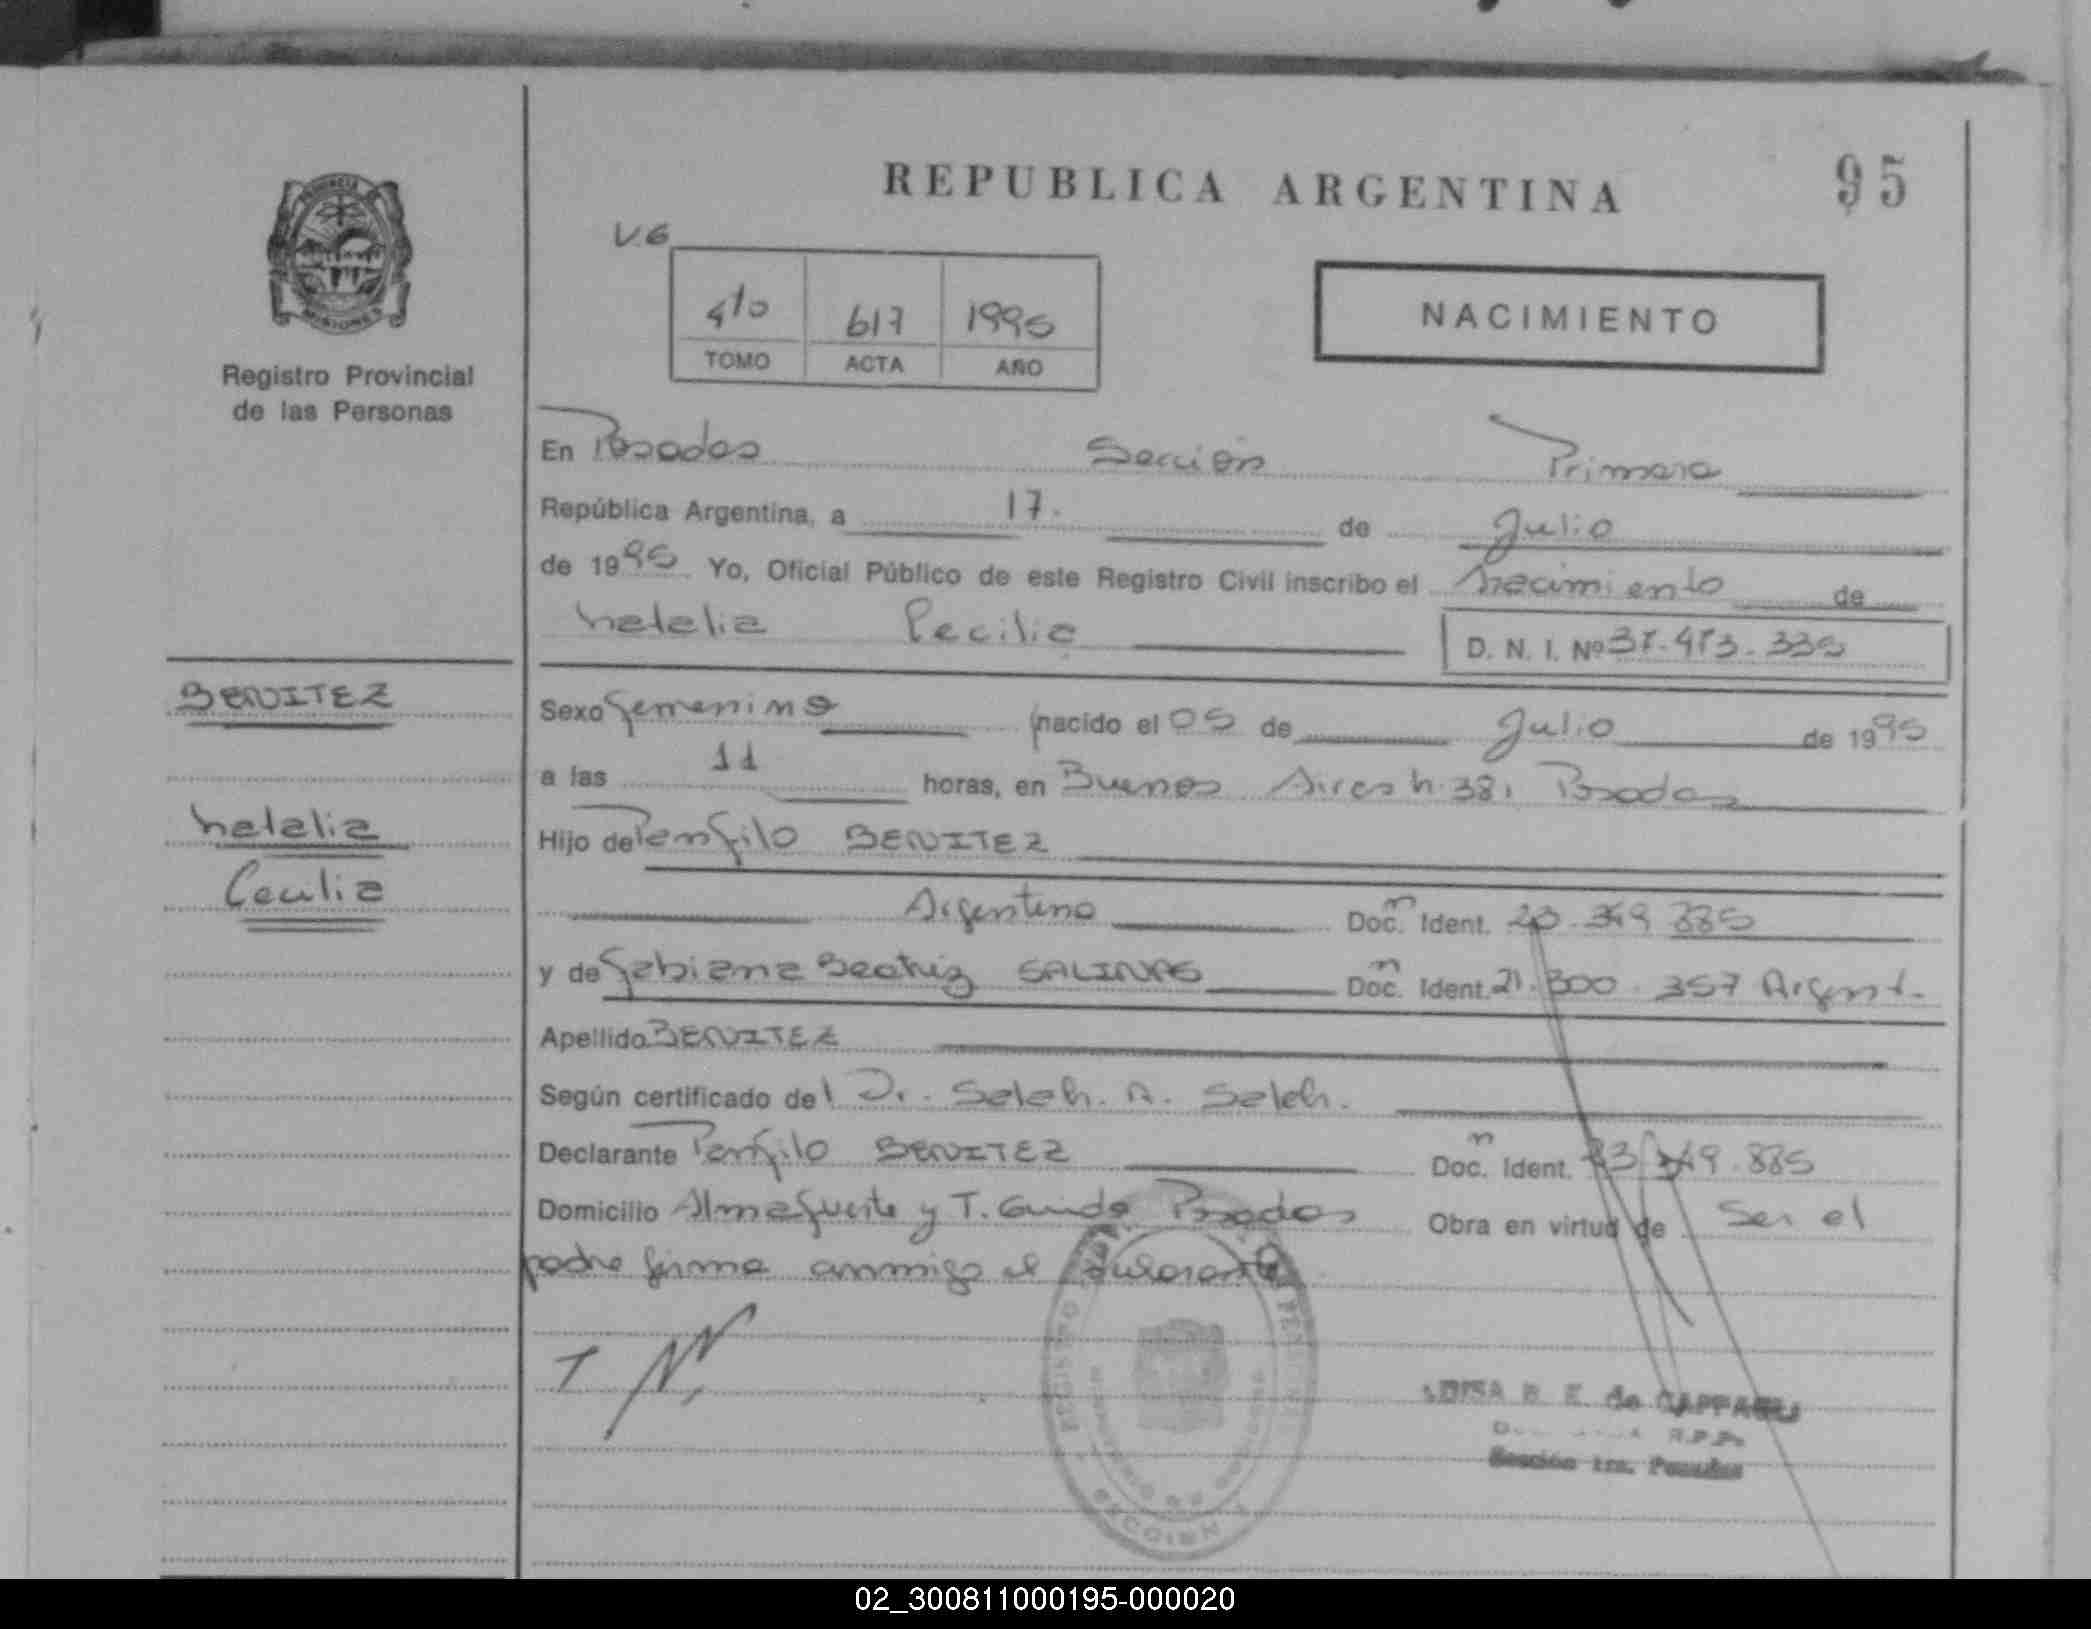 REPUBLICA ARGENTINA
95
V.6
4to 617 1995
TOMO ACTA AÑO
NACIMIENTO
MISIONES
Registro Provincial
de las Personas
En Posadas Sección Primera
República Argentina, a 17. de Julio
de 1995 Yo, Oficial Público de este Registro Civil inscribo el nacimiento de
Natalia Cecilia
D. N. I. Nº
BENITEZ
Natalia
Cecilia
Sexo femenino nacido el 05 de Julio de 1995
a las 11 horas, en Buenos Aires N. 38, Posadas
Hijo de Panfilo BENITEZ
Argentino Doc. n Ident.
y de Fabiana Beatriz SALINAS Doc. n Ident. 21.300.357 Argent.
Apellido BENITEZ
Según certificado del Dr. Saleh. A. Saleh.
Declarante Panfilo BENITEZ Doc. n Ident.
Domicilio Almafuerte y T. Guido Posadas Obra en virtud de Ser el
padre firma conmigo el declarante
B. E. de
R.P.P.
Sección 1ra. Posadas
02_300811000195-000020